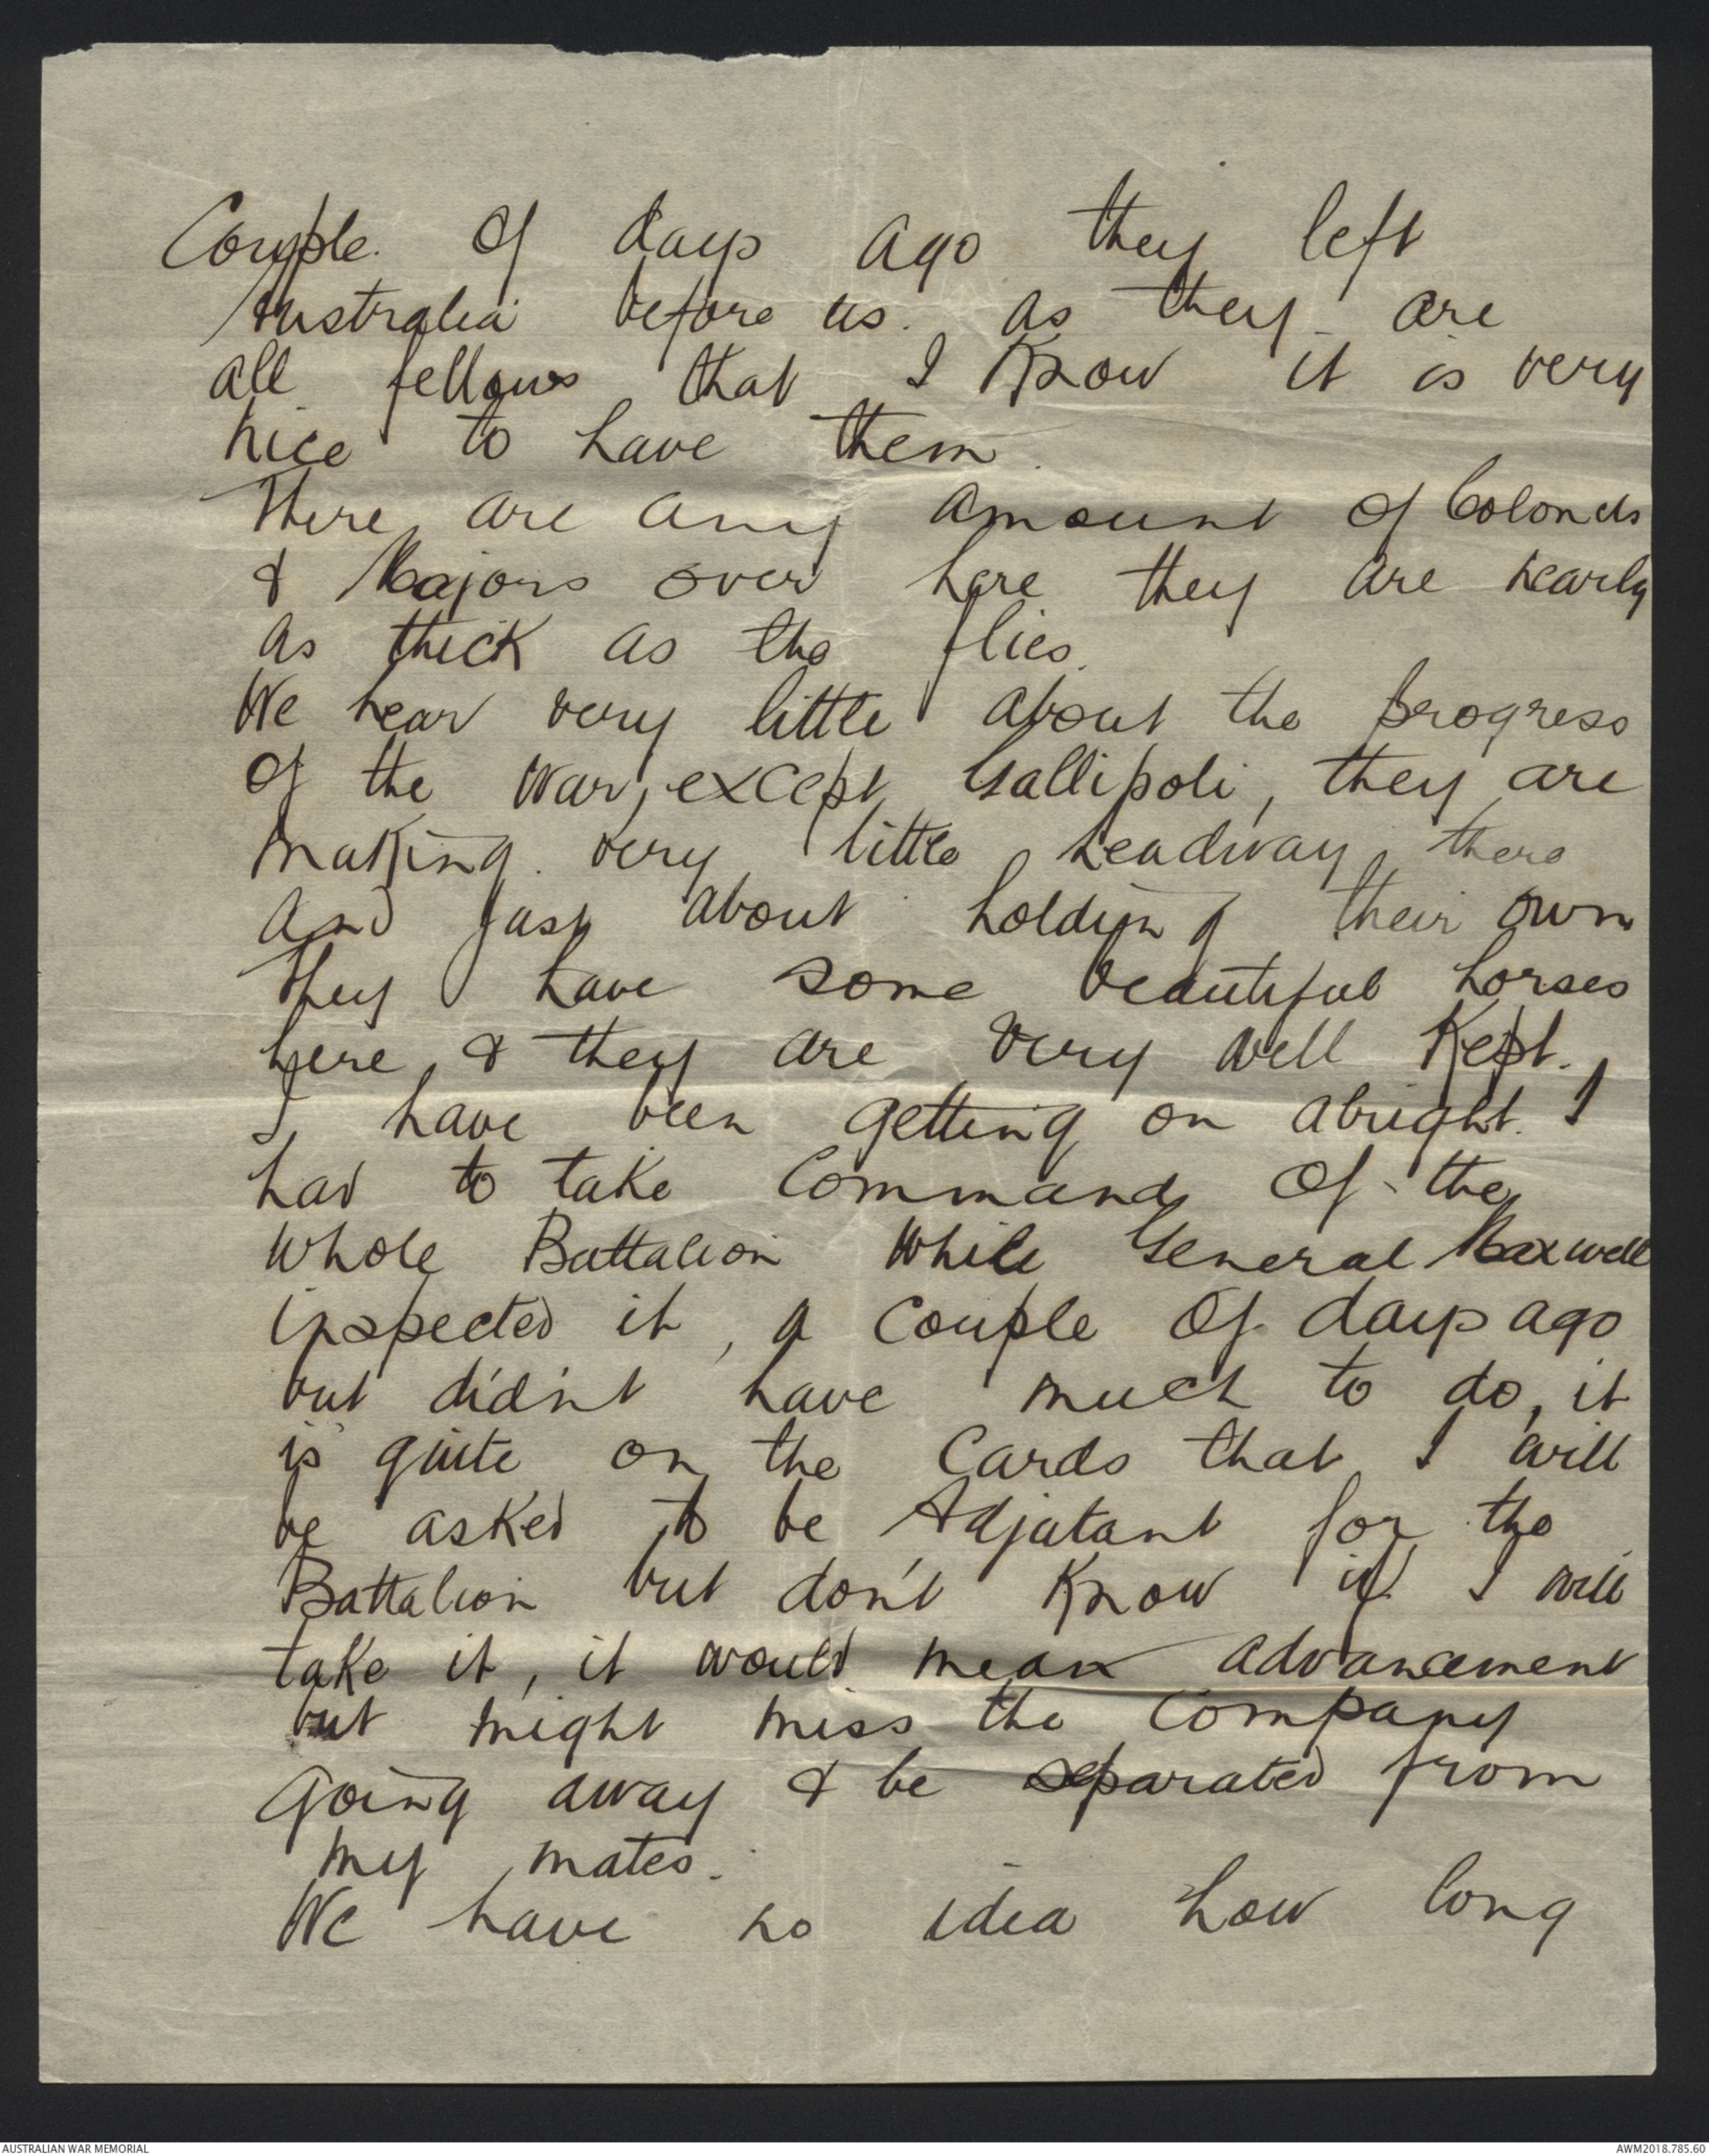 Couple. of days ago they left
Australia before us. as they are
all fellows that I know it is very
nice to have them.
There are any amount of Colonels
& Majors over here they are nearly
as thick as the flies.
We hear very little about the progress
of the war, except Gallipoli, they are
making very little headway there
and just about holding their own
They have some beautiful horses
here & they are very well kept.
I have been getting on alright. I
had to take Command of the
whole Battalion while General Maxwell
inspected it, a couple of days ago
but did'nt have much to do, it
is quite on the cards that I will
be asked to be Adjatant for the
Battalion but don't know if I will
take it, it would mean advancement
but might miss the Company
going away & be separated from
my mates.
We have no idea how long
AUSTRALIAN WAR MEMORIAL
AWM2018.785.60